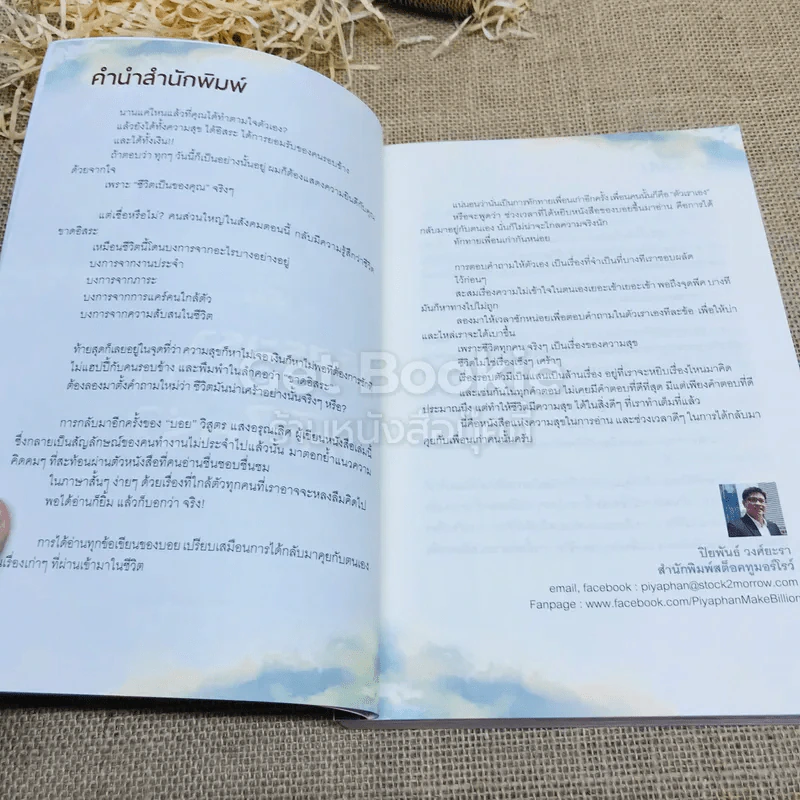 คำนำสำนักพิมพ์
นานแค่ไหนแล้วที่คุณได้ทำตามใจตัวเอง?
แล้วยังได้ทั้งความสุข ได้อิสระ ได้การยอมรับของคนรอบข้าง
และได้ทั้งเงิน!!
ถ้าตอบว่า ทุกๆ วันนี้ก็เป็นอย่างนั้นอยู่ ผมก็ต้องแสดงความยินดีกับคุณ
ด้วยจากใจ
เพราะ "ชีวิตเป็นของคุณ" จริงๆ
แต่เชื่อหรือไม่? คนส่วนใหญ่ในสังคมตอนนี้ กลับมีความรู้สึกว่าชีวิต
ขาดอิสระ
เหมือนชีวิตนี้โดนบงการจากอะไรบางอย่างอยู่
บงการจากงานประจำ
บงการจากภาระ
บงการจากการแคร์คนใกล้ตัว
บงการจากความสับสนในชีวิต
ท้ายสุดก็เลยอยู่ในจุดที่ว่า ความสุขก็หาไม่เจอ เงินก็หาไม่พอที่ต้องการรัก
ไม่แฮปปี้กับคนรอบข้าง และพึมพำในลำคอว่า "ขาดอิสระ"
ต้องลองมาตั้งคำถามใหม่ว่า ชีวิตมันน่าเศร้าอย่างนั้นจริงๆ หรือ?
การกลับมาอีกครั้งของ "บอย" วิสูตร แสงอรุณเลิศ ผู้เขียนหนังสือเล่มนี้
ซึ่งกลายเป็นสัญลักษณ์ของคนทำงานไม่ประจำไปแล้วนั้น มาตอกย้ำแนวความ
คิดคมๆ ที่สะท้อนผ่านตัวหนังสือที่คนอ่านชื่นชอบชื่นชม
ในภาษาสั้นๆ ง่ายๆ ด้วยเรื่องที่ใกล้ตัวทุกคนที่เราอาจจะหลงลืมคิดไป
พอได้อ่านก็ยิ้ม แล้วก็บอกว่า จริง!
การได้อ่านทุกข้อเขียนของบอย เปรียบเสมือนการได้กลับมาคุยกับตนเอง
เรื่องเก่าๆ ที่ผ่านเข้ามาในชีวิต
แน่นอนว่านั่นเป็นการทักทายเพื่อนเก่าอีกครั้ง เพื่อนคนนั้นก็คือ "ตัวเราเอง"
หรือจะพูดว่า ช่วงเวลาที่ได้หยิบหนังสือของบอยขึ้นมาอ่าน คือการได้
กลับมาอยู่กับตนเอง นั่นก็ไม่น่าจะไกลความจริงนัก
ทักทายเพื่อนเก่ากันหน่อย
การตอบคำถามให้ตัวเอง เป็นเรื่องที่จำเป็นที่บางทีเราชอบผลัด
ไว้ก่อนๆ
สะสมเรื่องความไม่เข้าใจในตนเองเยอะเข้าเยอะเข้า พอถึงจุดพีค บางที
มันก็หาทางไปไม่ถูก
ลองมาให้เวลาซักหน่อยเพื่อตอบคำถามในตัวเราเองทีละข้อ เพื่อให้บ่า
และไหล่เราจะได้เบาขึ้น
เพราะชีวิตทุกคน จริงๆ เป็นเรื่องของความสุข
ชีวิตไม่ใช่เรื่องเร็งๆ เศร้าๆ
เรื่องรอบตัวมีเป็นแสนเป็นล้านเรื่อง อยู่ที่เราจะหยิบเรื่องไหนมาคิด
และเช่นกันในทุกคำตอบ ไม่เคยมีคำตอบที่ดีที่สุด มีแต่เพียงคำตอบที่ดี
ประมาณนึง แต่ทำให้ชีวิตมีความสุข ได้ในสิ่งดีๆ ที่เราทำเต็มที่แล้ว
นี่คือหนังสือแห่งความสุขในการอ่าน และช่วงเวลาดีๆ ในการได้กลับมา
คุยกับเพื่อนเก่าคนนั้นครับ
Get Bookie
ร้านหนังสือบุ๊คกี้
ปิยพันธ์ วงศ์ยะรา
สำนักพิมพ์สต็อคทูมอร์โรว์
email, facebook : piyaphan@stock2morrow.com
Fanpage : www.facebook.com/PiyaphanMakeBillion